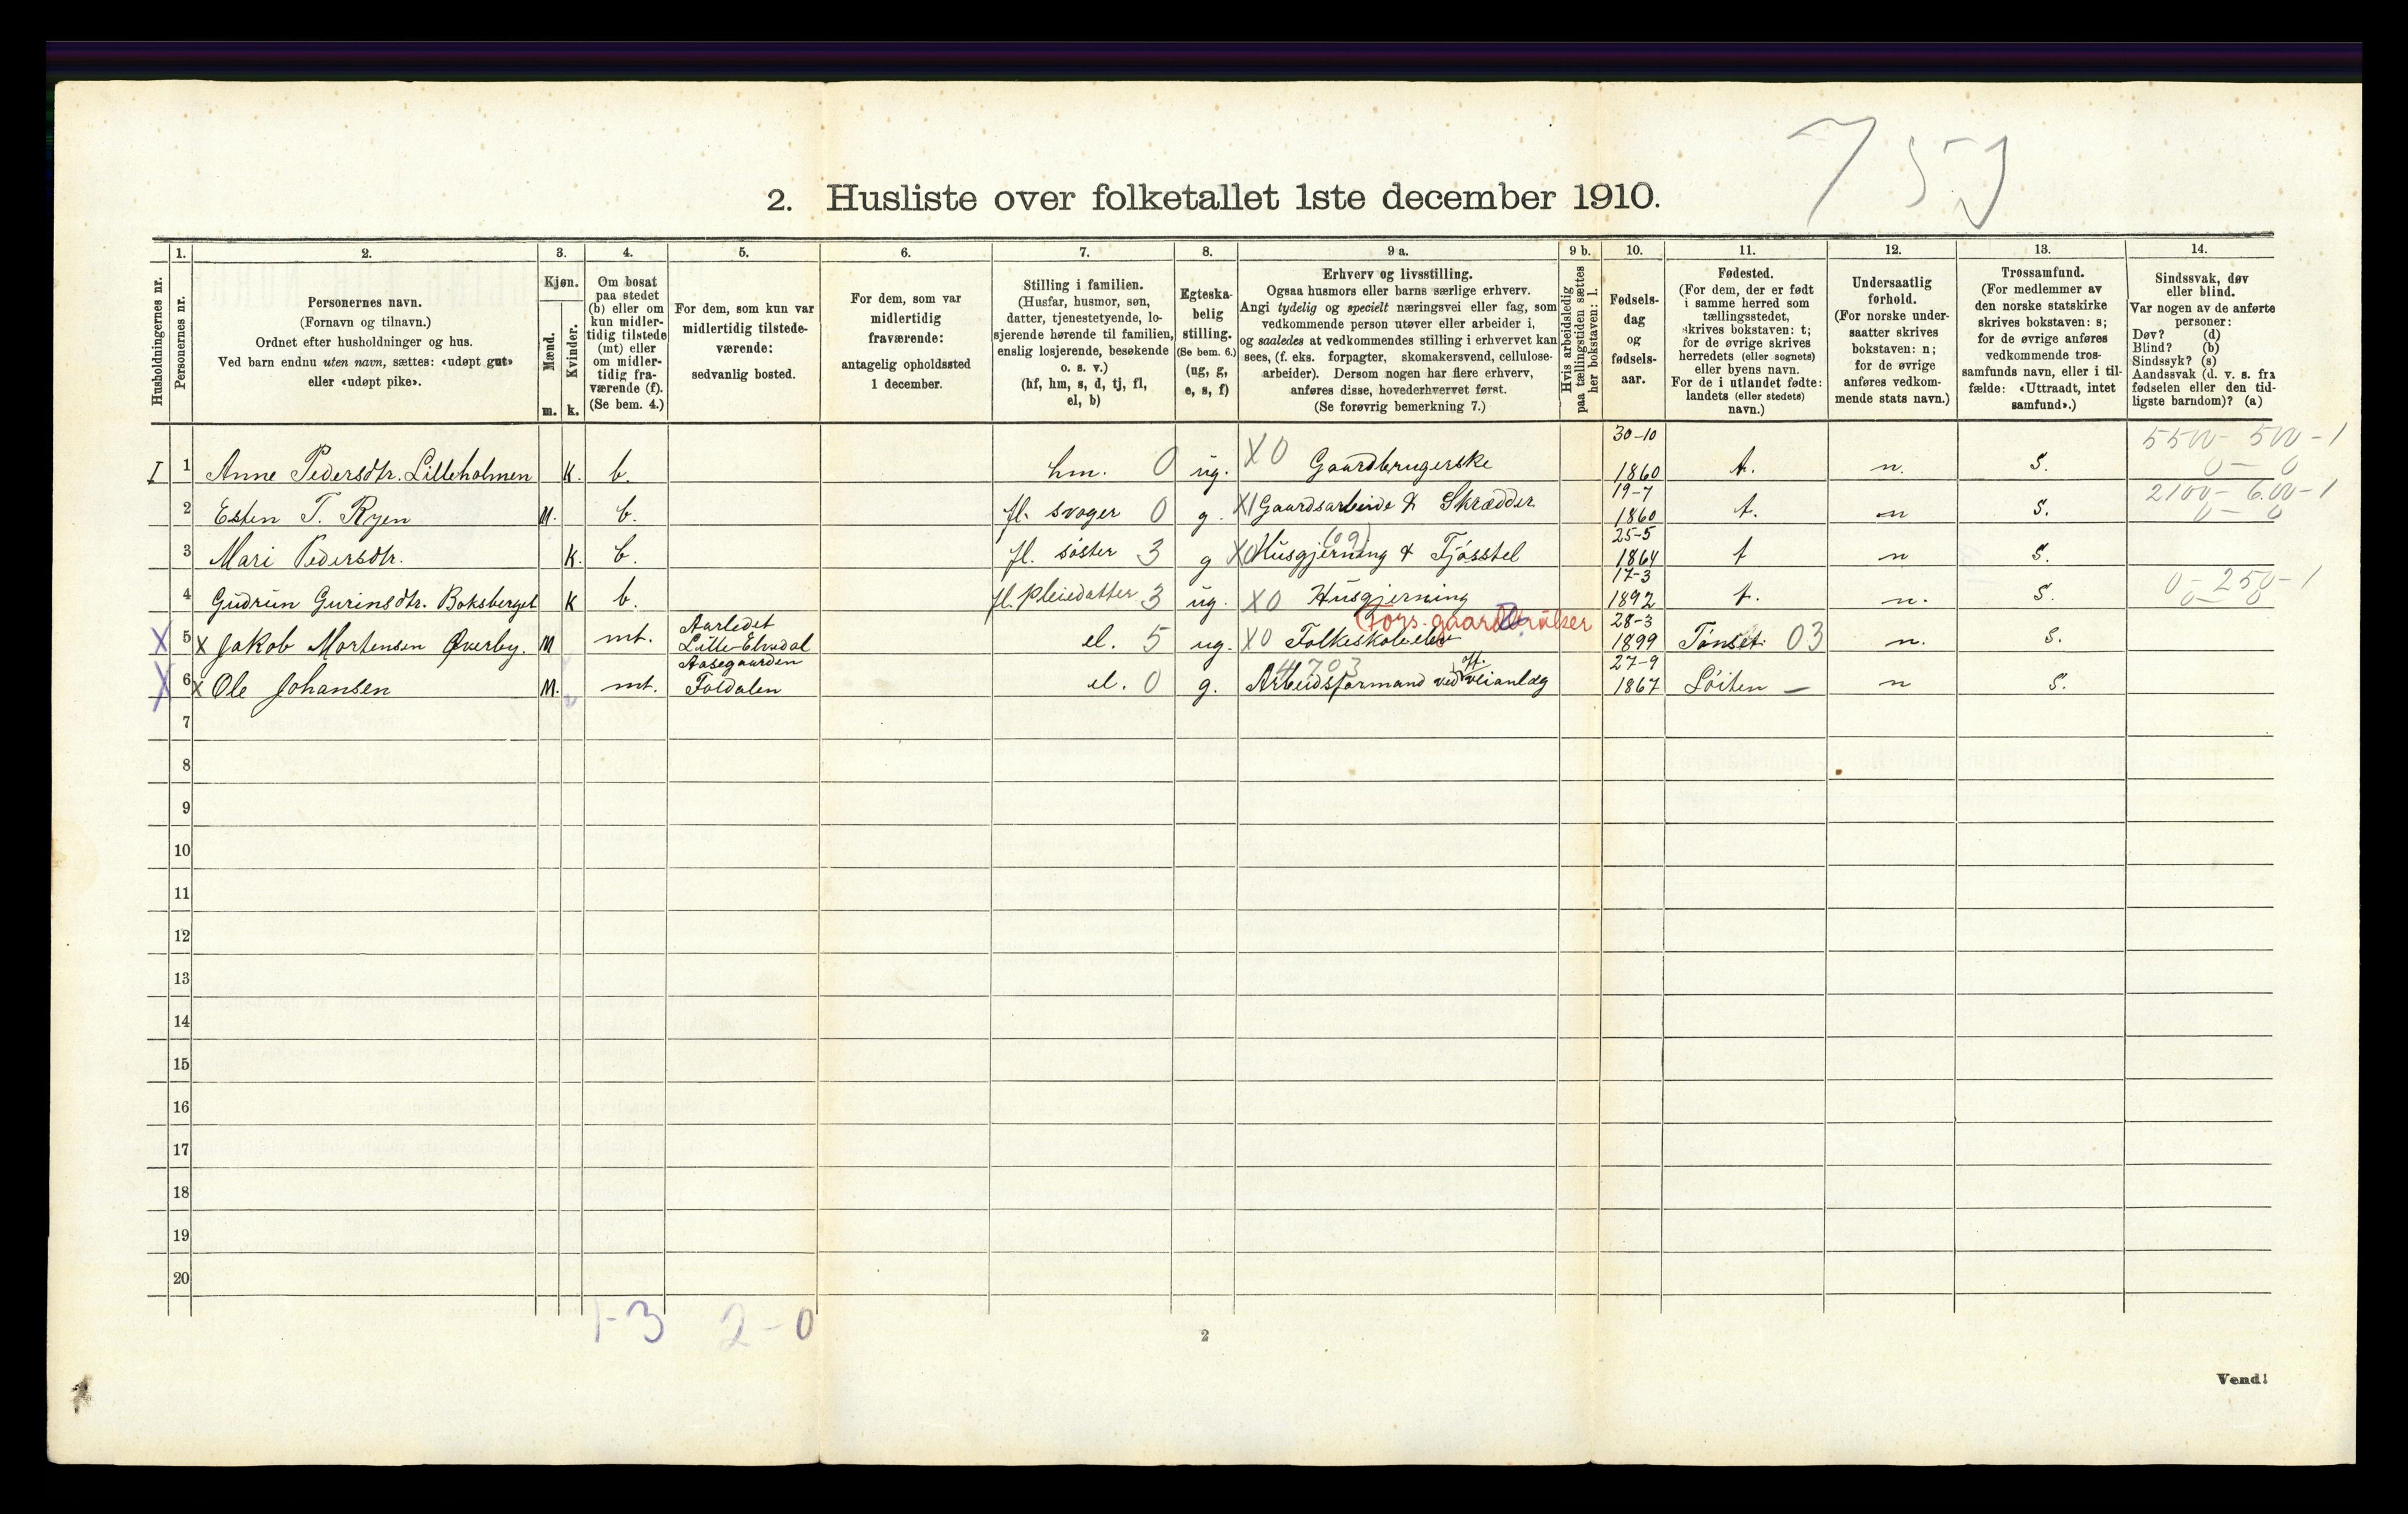 759
2. Husliste over folketallet 1ste december 1910.
1. 2. 3. 4. 5. 6. 7. 8. 9 a. 9 b. 10. 11. 12. 13. 14.
Husholdningernes nr.
Personernes nr.
Personernes navn.
(Fornavn og tilnavn.)
Ordnet efter husholdninger og hus.
Ved barn endnu uten navn, sættes: «udøpt gut»
eller «udøpt pike».
Kjøn.
Mænd.
Kvinder.
m. k.
Om bosat
paa stedet
(b) eller om
kun midler-
tidig tilstede
(mt) eller
om midler-
tidig fra-
værende (f).
(Se bem. 4.)
For dem, som kun var
midlertidig tilstede-
værende:
sedvanlig bosted.
For dem, som var
midlertidig
fraværende:
antagelig opholdssted
1 december.
Stilling i familien.
(Husfar, husmor, søn,
datter, tjenestetyende, lo-
sjerende hørende til familien,
enslig losjerende, besøkende
o. s. v.)
(hf, hm, s, d, tj, fl,
el, b)
Egteska-
belig
stilling.
(Se bem. 6.)
(ug, g,
e, s, f)
Erhverv og livsstilling.
Ogsaa husmors eller barns særlige erhverv.
Angi tydelig og specielt næringsvei eller fag, som
vedkommende person utøver eller arbeider i,
og saaledes at vedkommendes stilling i erhvervet kan
sees, (f. eks. forpagter, skomakersvend, cellulose-
arbeider). Dersom nogen har flere erhverv,
anføres disse, hovederhvervet først.
(Se forøvrig bemerkning 7.)
Hvis arbeidsledig
paa tællingstiden sættes
her bokstaven: l.
Fødsels-
dag
og
fødsels-
aar.
Fødested.
(For dem, der er født
i samme herred som
tællingsstedet,
skrives bokstaven: t;
for de øvrige skrives
herredets (eller sognets)
eller byens navn.
For de i utlandet fødte:
landets (eller stedets)
navn.)
Undersaatlig
forhold.
(For norske under-
saatter skrives
bokstaven: n;
for de øvrige
anføres vedkom-
mende stats navn.)
Trossamfund.
(For medlemmer av
den norske statskirke
skrives bokstaven: s;
for de øvrige anføres
vedkommende tros-
samfunds navn, eller i til-
fælde: «Uttraadt, intet
samfund».)
Sindssvak, døv
eller blind.
Var nogen av de anførte
personer:
Døv? (d)
Blind? (b)
Sindssyk? (s)
Aandssvak (d. v. s. fra
fødselen eller den tid-
ligste barndom)? (a)
30-10 5500- 500-1
I 1 Anne Pedersdtr. Lilleholmen K. b. hm. 0 ug. X0 Gaardbrugerske 1860 t. n. S. 0-0
19-7 2100- 600-1
2 Esten T. Ryen M. b. fl. svoger 0 g. X1 Gaardsarbeide & Skrædder 1860 t. n S. 0-0
(09) 25-5
3 Mari Pedersdtr. K. b. fl. søster 3 g X0 Husgjerning & Fjösstel 1864 t n S.
17-3 0-250-1
4 Gudrun Gurinsdtr. Boksberget K b. fl. Pleiedatter 3 ug. X0 Husgjerning 1892 t. n. S. 0-0
Aarledet Fors. gaardbruker 28-3
X 5 x Jakob Mortensen Øverby. M mt. Lille-Elvedal el. 5 ug. X0 Folkeskoleelev 1899 Tønset 03 n. S.
Aasegaarden 4703 off. 27-9
X 6 x Ole Johansen M. mt. Foldalen el. 0 g. Arbeidsformand ved veianlæg 1867 Löiten - n S.
7
8
9
10
11
12
13
14
15
16
17
18
19
20
1-3 2-0
2
Vend!